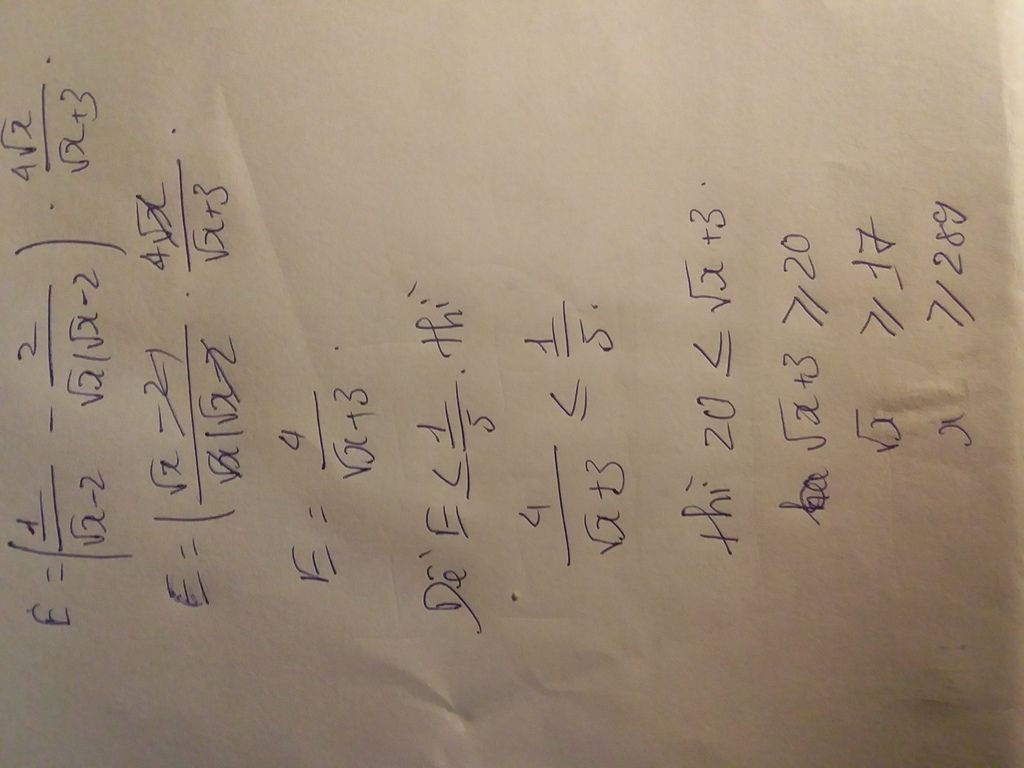 E = (1/(√x-2) - 2/(√x(√x-2)) · 4√x/(√x+3).
E = (√x-2)/(√x(√x-2) · 4√x/(√x+3).
E = 4/(√x+3).
Để E ≤ 1/5. thì
4/(√x+3) ≤ 1/5.
thì 20 ≤ √x+3.
√x+3 ≥ 20
√x ≥ 17
x ≥ 289